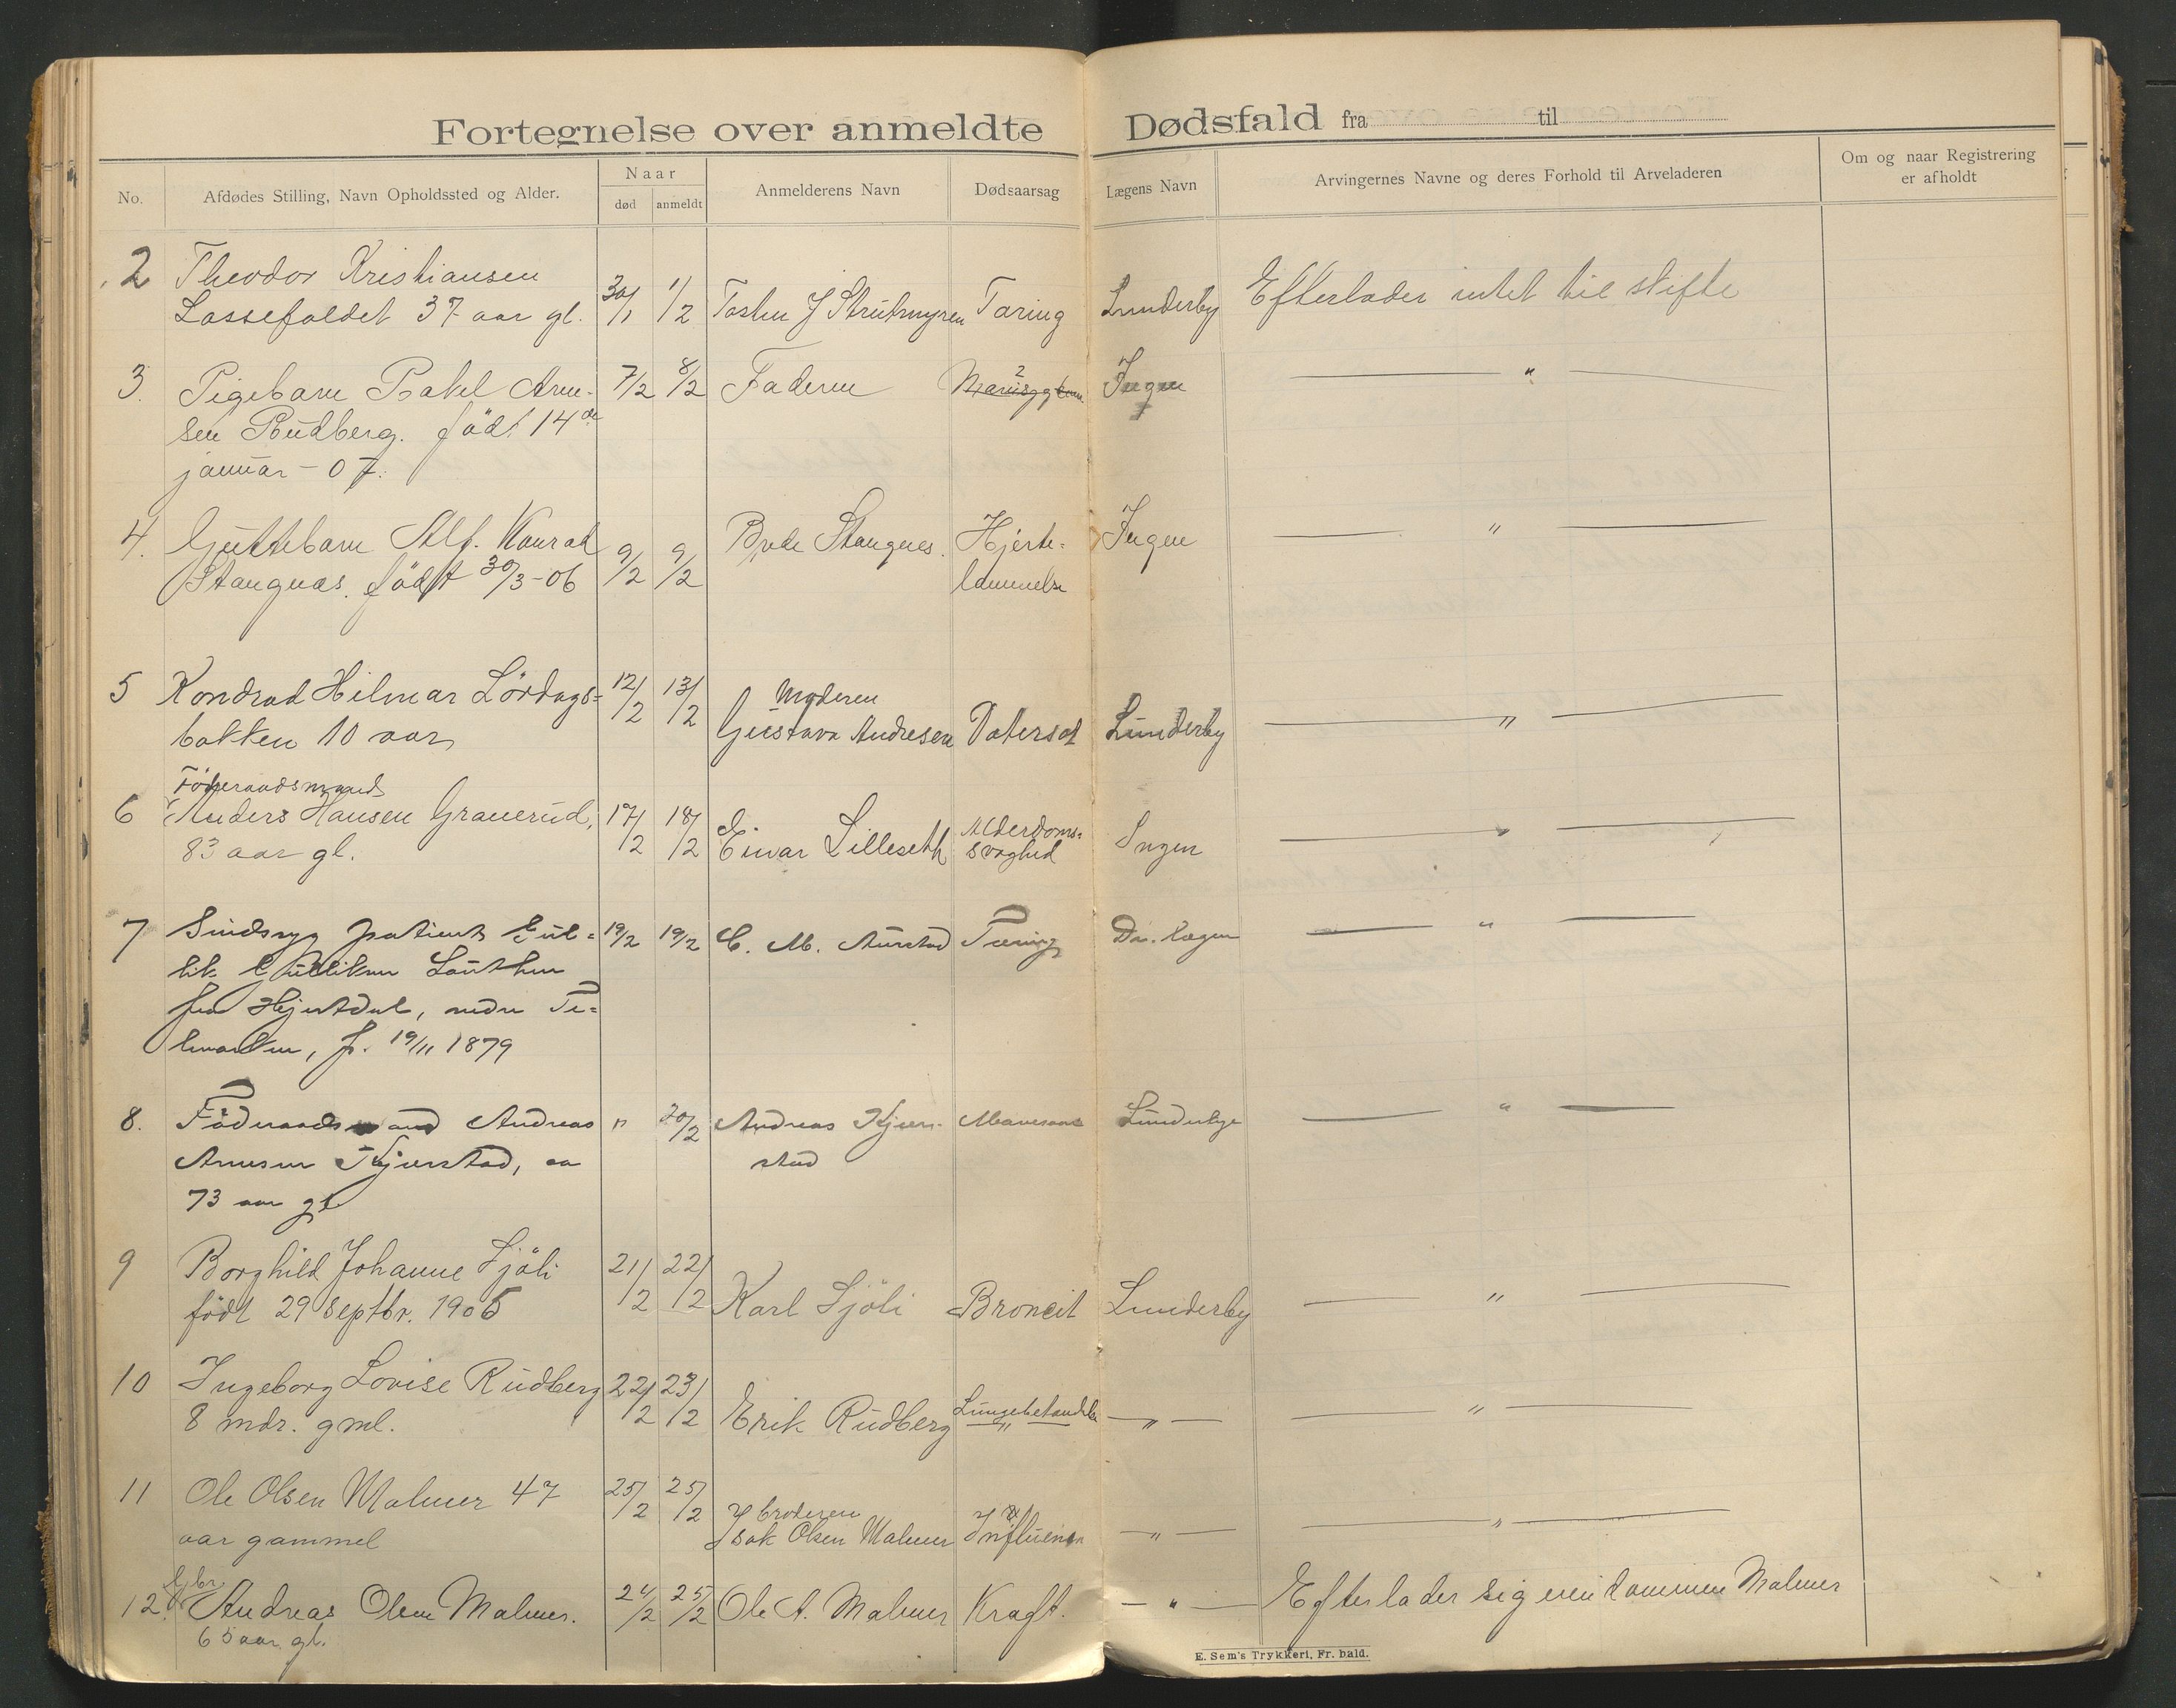 Fortegnelse over anmeldte Dødsfald fra til
No. Afdødes Stilling, Navn Opholdssted og Alder. Naar død anmeldt Anmelderens Navn Dødsaarsag Lægens Navn Arvingernes Navne og deres Forhold til Arveladeren Om og naar Registrering er afholdt
2 Theodor Kristiansen
Lassefaldet 37 aar gl. 30/1 1/2 Tosten J Strutsmyren Tæring Lunderby Efterlader intet til skifte
3. Pigebarn Rakel Arne- 7/2 8/2 Faderen Ingen — " —
sen Rudberg. födt 14de
januar - 07.
4. Guttebarn Alf. Konrad Brede Stangnes. Hjerte- Ingen — " —
Stangnæs. födt 30/3-06 9/2 9/2 lammelse
5 Kondrad Hilmar Lördags= 12/2 13/2 Moderen
bakken 10 aar Gustava Andresen Lunderby — " —
Föderaadsmand
6 Anders Hansen Granerud, 17/2 18/2 Einar Lilleseth Alderdoms=
83 aar gl. svaghed Ingen — " —
7 Sindssyg patient Gul= 19/2 19/2 C. M. Aurstad Tæring Dr. lægen — " —
lik Gulliksen
fra Hjertdal, nedre Te=
lemarken, f. 19/11 1879
8. Föderaadsmand Andreas " 20/2 Andreas Kjer- Mavesaar Lunderbye — " —
Arnesen Kjerstad, ca stad
73 aar gl
9 Borghild Johanne Sjöli 21/2 22/2 Karl Sjöli Broncit Lunderby — " —
födt 29 septbr. 1905
10 Ingeborg Lovise Rudberg 22/2 23/2 Erik Rudberg — " — — " —
8 mdr. gml.
11 Ole Olsen Malmer 47 25/2 25/2 broderen
aar gammel Isak Olsen Malmer Influensa — " — — " —
Gbr.
12. Andreas Olsen Malmer. 24/2 25/2 Ole A. Malmer Kræft. — " — Efterlader sig eiendommen Malmer
65 aar gl.
E. Sem's Trykkeri, Fr. hald.